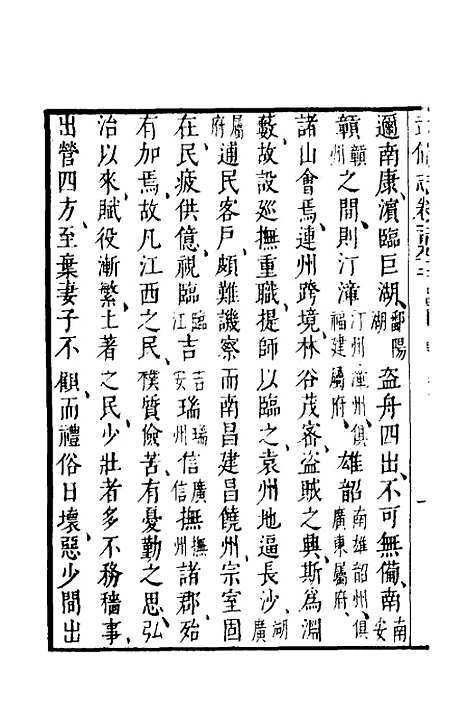 邇南康、濱臨巨湖、鄱陽湖盜舟四出、不可無備、南南安
贛贛州之間、則汀漳汀州、漳州、俱福建屬府、雄韶南雄韶州、俱廣東屬府、
諸山會焉、連州跨境、林谷茂密、盜賊之興、斯爲淵
藪、故設巡撫重職、提師以臨之、袁州地逼長沙、湖廣
屬府逋民客戶、頗難譏察、而南昌建昌饒州、宗室固
在、民疲供億、視臨臨江吉吉安瑞瑞州信廣信撫撫州諸郡、殆
有加焉、故凡江西之民、樸質儉苦、有憂勤之思、弘
治以來、賦役漸繁、土著之民、少壯者多不務穡事、
出營四方、至棄妻子不顧、而禮俗日壞、惡少間出